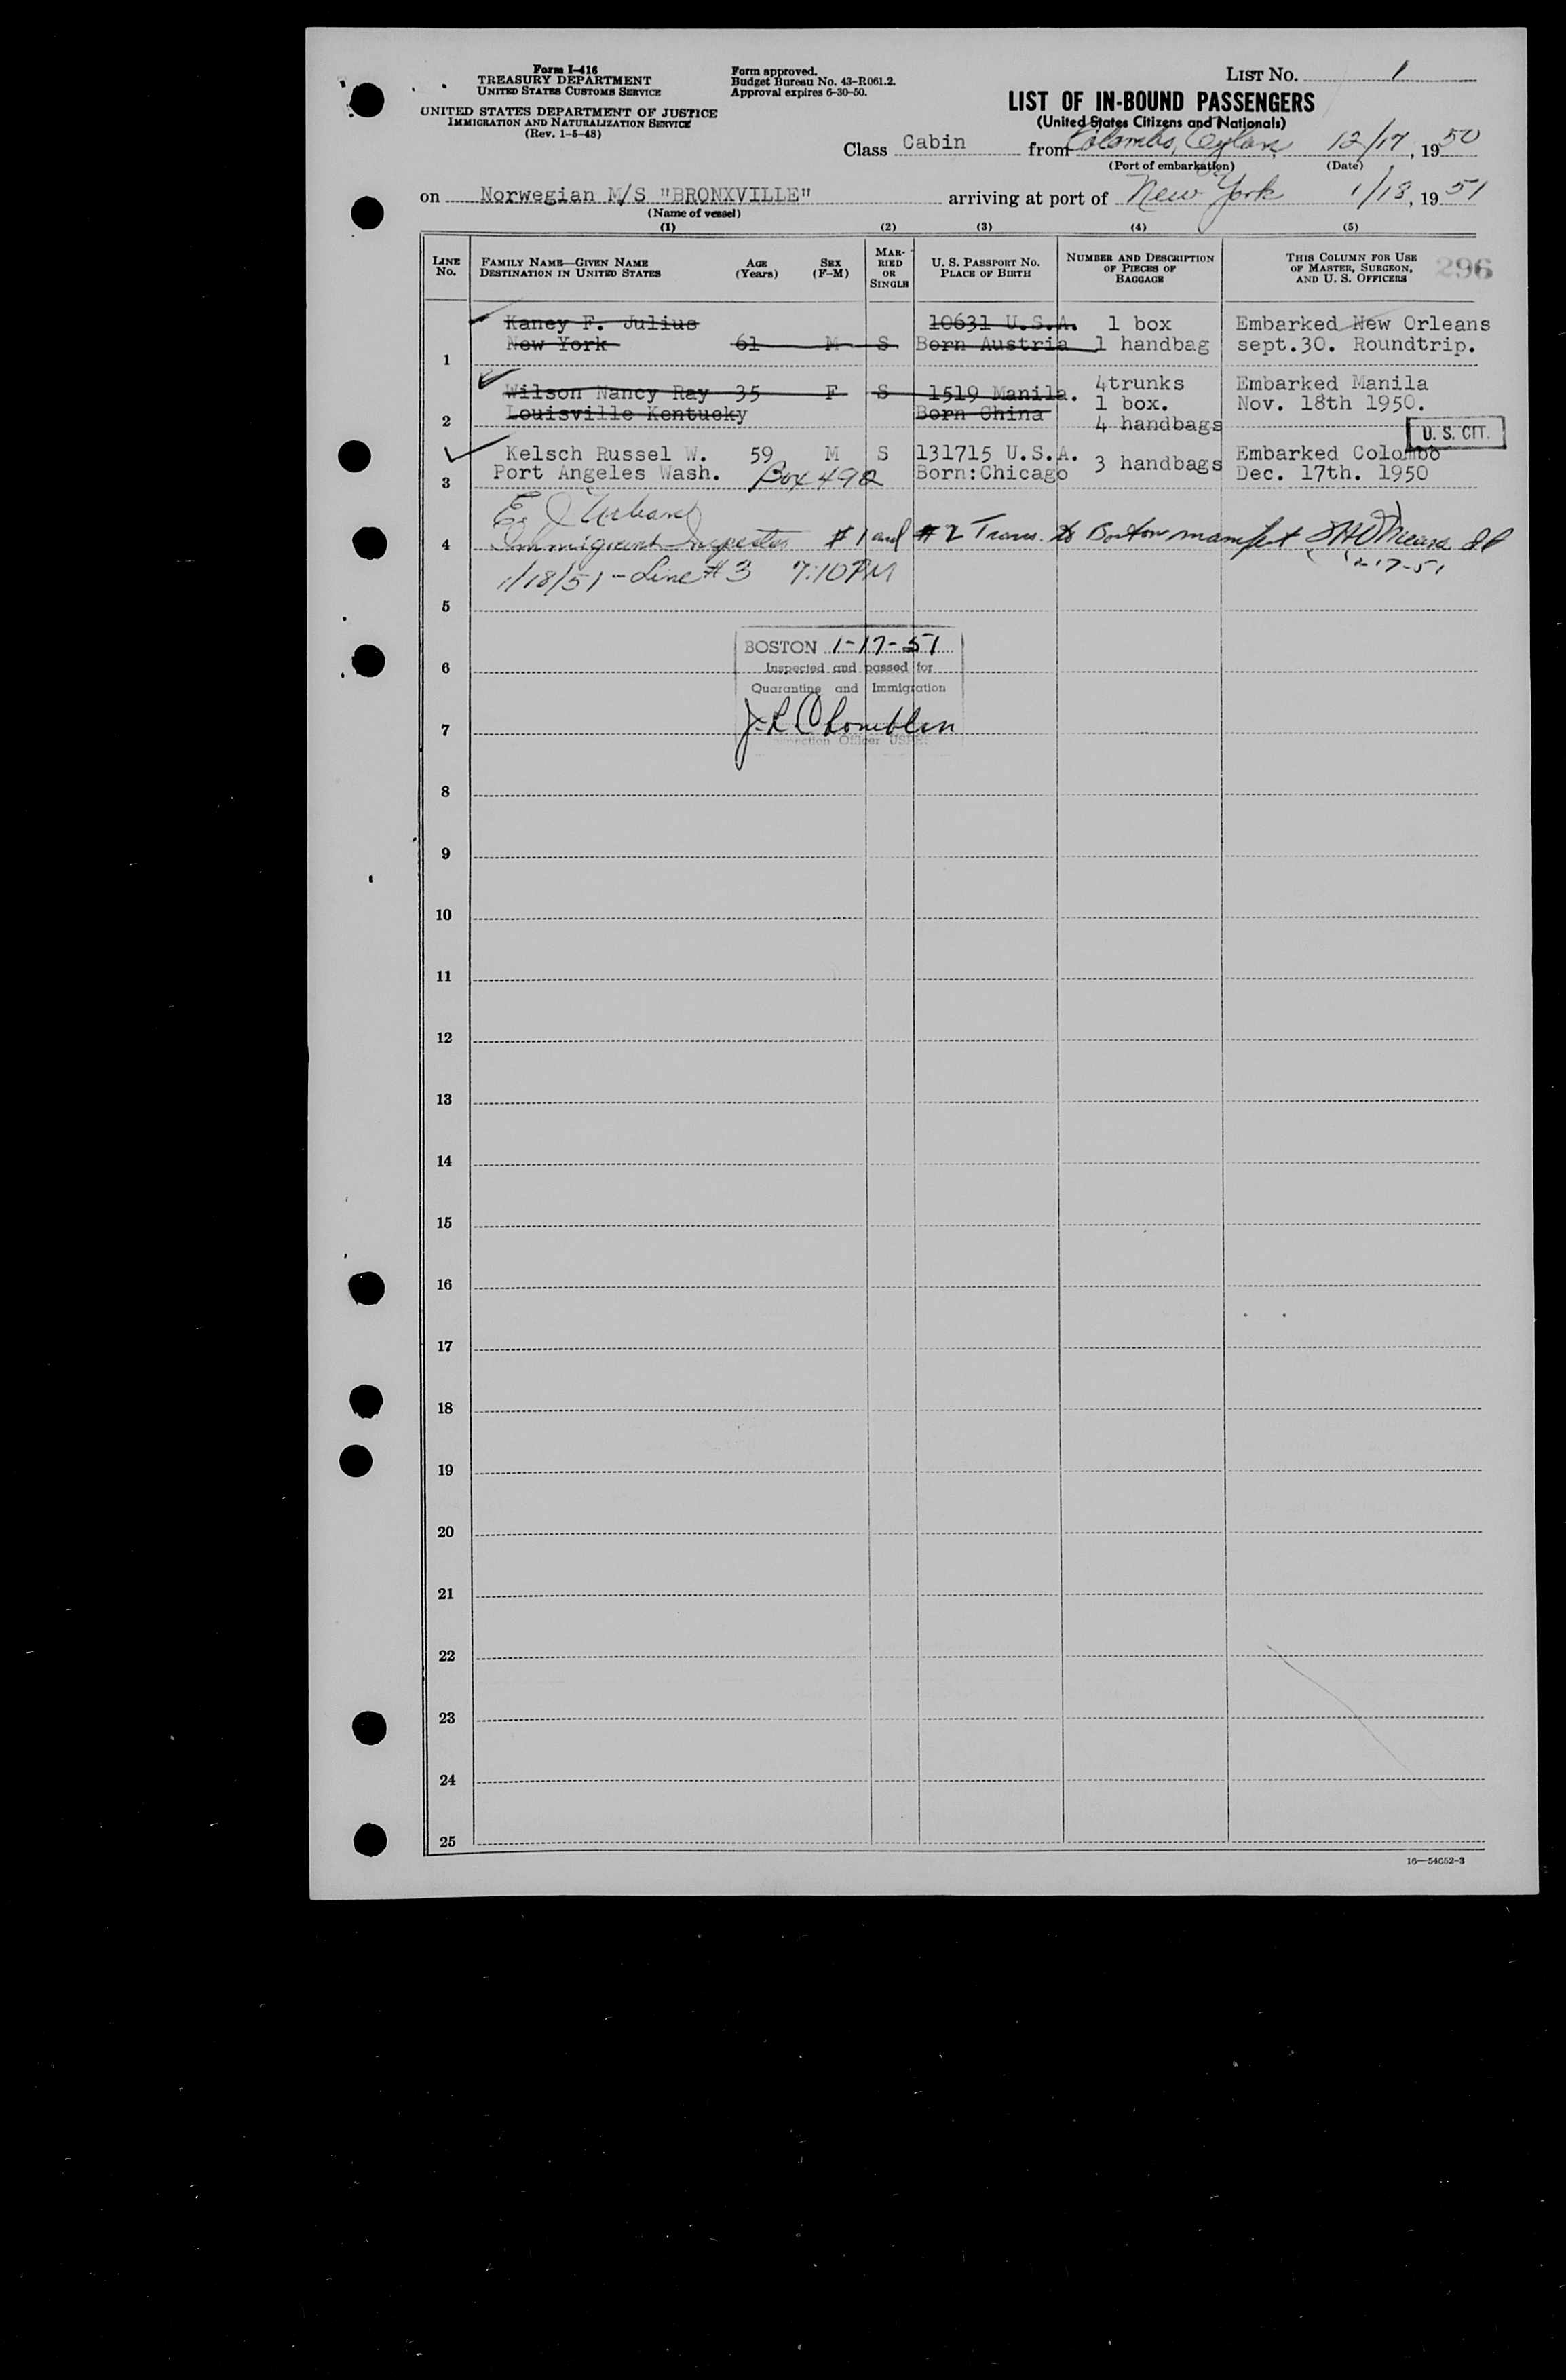 Form I-416
TREASURY DEPARTMENT
UNITED STATES CUSTOMS SERVICE
UNITED STATES DEPARTMENT OF JUSTICE
IMMIGRATION AND NATURALIZATION SERVICE
(Rev. 1-5-48)
Form approved.
Budget Bureau No. 43-R061.2.
Approval expires 6-30-50.
LIST NO. 1
LIST OF IN-BOUND PASSENGERS
(United States Citizens and Nationals)
Class Cabin from Colombo, Ceylon, 12/17, 1950
(Port of embarkation) (Date)
on Norwegian M/S "BRONXVILLE" arriving at port of New York 1/18, 1951
(Name of vessel)
(1) (2) (3) (4) (5)
LINE NO. FAMILY NAME—GIVEN NAME DESTINATION IN UNITED STATES AGE (Years) SEX (F-M) MARRIED OR SINGLE U. S. PASSPORT NO. PLACE OF BIRTH NUMBER AND DESCRIPTION OF PIECES OF BAGGAGE THIS COLUMN FOR USE OF MASTER, SURGEON, AND U. S. OFFICERS 296
Kaney F. Julius 10631 U.S.A. 1 box Embarked New Orleans
1 New York 61 M S Born Austria 1 handbag sept.30. Roundtrip.
Wilson Nancy Ray 35 F S 1519 Manila. 4trunks Embarked Manila
2 Louisville Kentucky Born China 1 box. Nov. 18th 1950.
4 handbags
U. S. CIT.
Kelsch Russel W. 59 M S 131715 U.S.A. 3 handbags Embarked Colombo
3 Port Angeles Wash. Box 492 Born:Chicago Dec. 17th. 1950
E. J.
4 Immigrant Inspector #1 and #2 Trans. to Boston manifest
1/18/51 - Line #3 7:10 PM
5
BOSTON 1-17-51
6 Inspected and passed for
Quarantine and Immigration
7 J. L.
8
9
10
11
12
13
14
15
16
17
18
19
20
21
22
23
24
25
16—54652-3